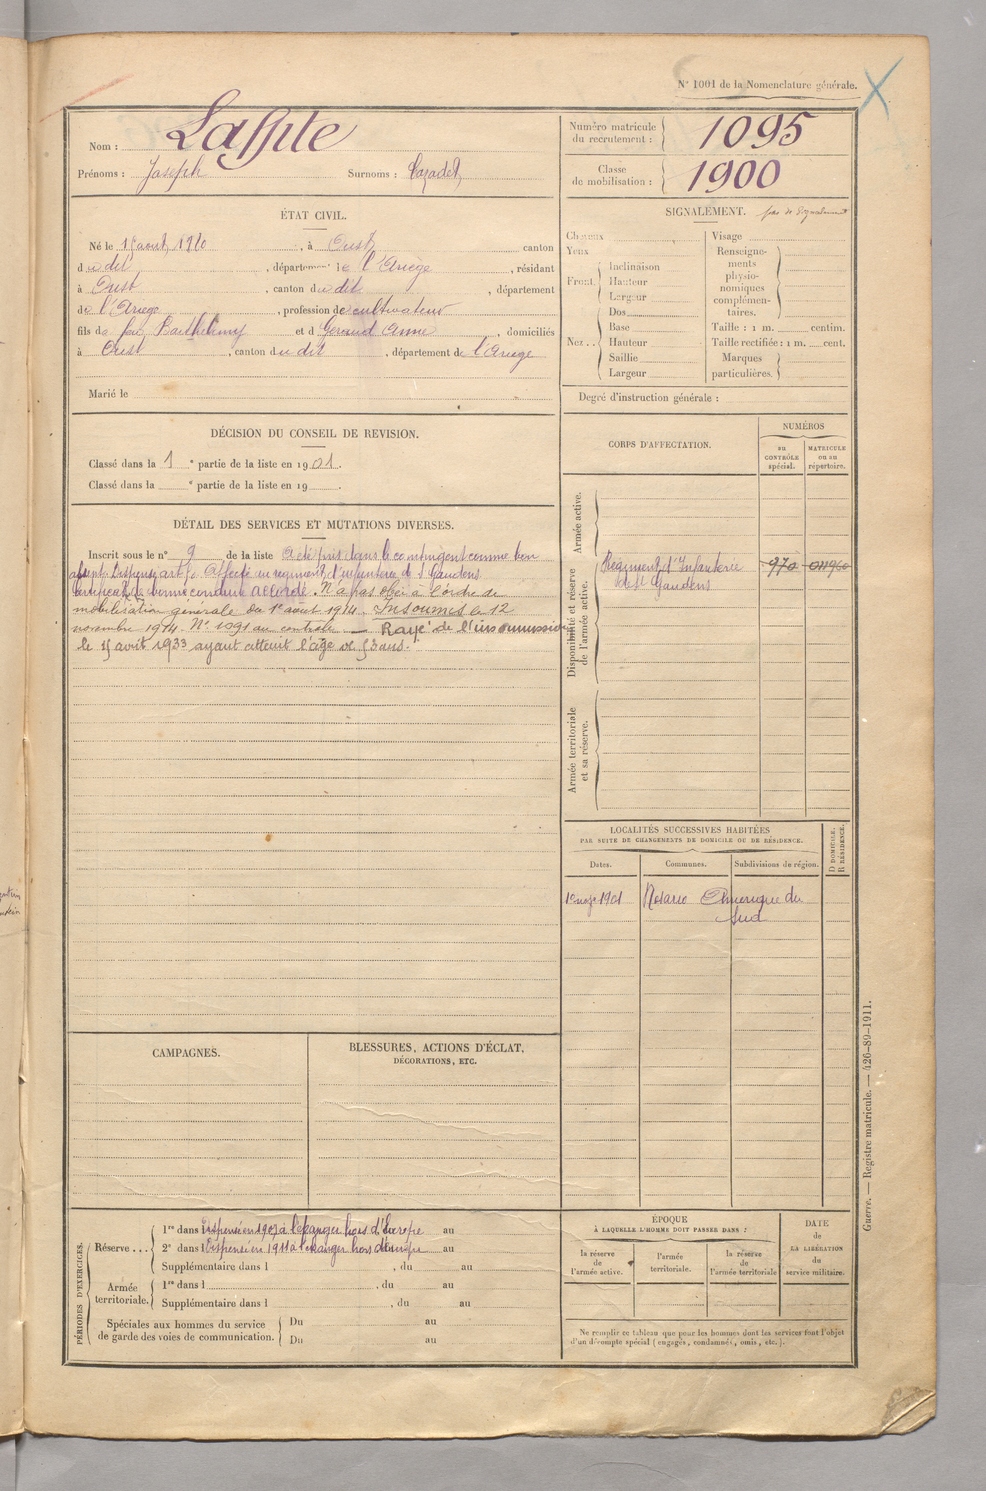 N° 1001 de la Nomenclature générale.
Nom : Laffite
Prénoms : Joseph Surnoms : Cazadet
Numéro matricule du recrutement : 1095
Classe de mobilisation : 1900
ÉTAT CIVIL.
Né le août, à Oust, canton
dudit, département de l'Ariège, résidant
à Oust, canton dudit, département
de l'Ariège, profession de cultivateur
fils de feu Barthélemy et d Géraud Anne, domiciliés
à Oust, canton dudit, département de l'Ariège
Marié le
SIGNALEMENT. pas de signalement
Cheveux
Yeux
Front. Inclinaison
Hauteur
Largeur
Nez... Dos
Base
Hauteur
Saillie
Largeur
Visage
Renseignements physionomiques complémentaires.
Taille : 1 m. centim.
Taille rectifiée : 1 m. cent.
Marques particulières.
Degré d'instruction générale :
DÉCISION DU CONSEIL DE REVISION.
Classé dans la 1 e partie de la liste en 1901.
Classé dans la e partie de la liste en 19 .
DÉTAIL DES SERVICES ET MUTATIONS DIVERSES.
Inscrit sous le n° 9 de la liste A été pris dans le contingent comme bon
absent. Dispensé art 50 Affecté au régiment d'infanterie de St Gaudens
Certificat de bonne conduite accordé. N'a pas obéi à l'ordre de
mobilisation générale du 1er août 1914. Insoumis le 12
novembre 1914. N° 1091 au contrôle — Rayé de l'insoumission
le 15 août 1933 ayant atteint l'âge de 53 ans.
CORPS D'AFFECTATION.
NUMÉROS
au CONTRÔLE spécial.
MATRICULE ou au répertoire.
Armée active.
Disponibilité et réserve de l'armée active.
Régiment d'Infanterie 970 011960
de St Gaudens
Armée territoriale et sa réserve.
LOCALITÉS SUCCESSIVES HABITÉES
PAR SUITE DE CHANGEMENTS DE DOMICILE OU DE RÉSIDENCE.
Dates. Communes. Subdivisions de région. D DOMICILE. R RÉSIDENCE.
1901 Rosario Amérique du
Sud
CAMPAGNES.
BLESSURES, ACTIONS D'ÉCLAT,
DÉCORATIONS, ETC.
PÉRIODES D'EXERCICES.
Réserve.... 1re dans l Dispensé en 1907 à l'étranger hors d'Europe au
2e dans l Dispensé en 1911 à l'étranger hors d'Europe au
Supplémentaire dans l , du au
Armée territoriale. 1re dans l , du au
Supplémentaire dans l , du au
Spéciales aux hommes du service de garde des voies de communication. Du au
Du au
ÉPOQUE
À LAQUELLE L'HOMME DOIT PASSER DANS :
la réserve de l'armée active.
l'armée territoriale.
la réserve de l'armée territoriale
DATE
de
LA LIBÉRATION
du
service militaire.
Ne remplir ce tableau que pour les hommes dont les services font l'objet
d'un décompte spécial (engagés, condamnés, omis, etc.).
Guerre. — Registre matricule. — 426-89-1911.